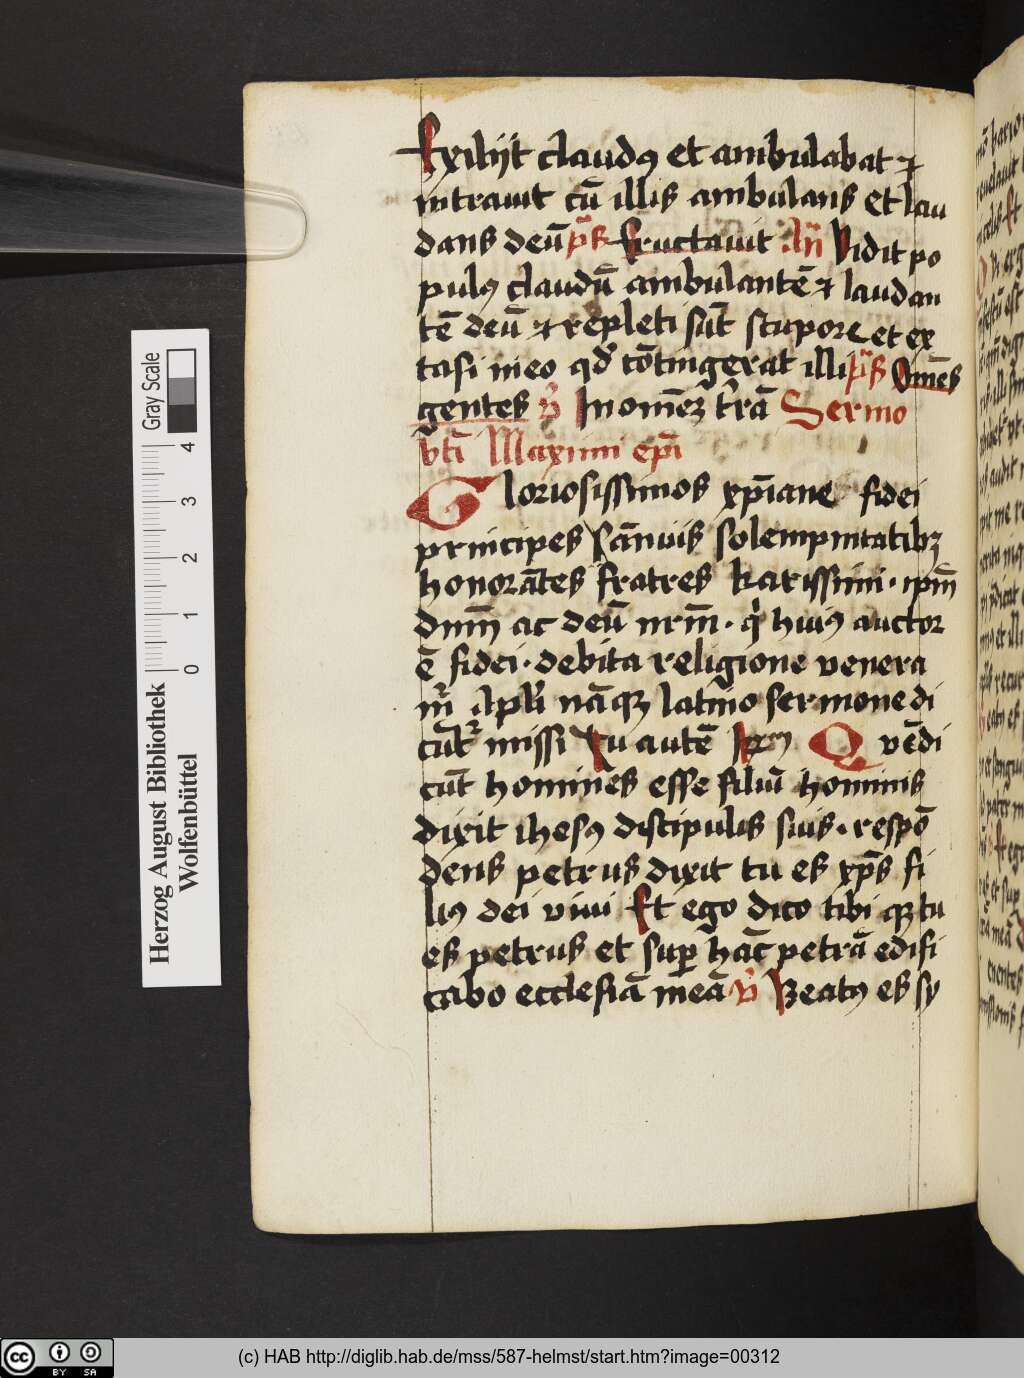 Exilijt claudꝰ et ambulabat ⁊
intrauit cū illis ambulans et lau
dans deū p̄s Eructauit An̄ Uidit po
pulꝰ claudū ambulantē ⁊ laudan
tē deū ⁊ repleti sūt stupore et ex
tasi in eo qd̓ cōtingerat illi p̄s Om̄es
gentes v̓ In om̄eꝫ t̓rā Sermo
bt̄i Maximi ep̄i
Gloriosissimos xp̄iane fidei
principes sānuis solempnitatibꝫ
honorātes fratres karissimi · ip̄m
dn̄m ac deū nr̄m · q̇ huiꝰ auctor
ē fidei · debita religione venera
m̓ Apl̓i nāqꝫ latino sermone di
cūt᷑ missi Tu autē
Q vē di
cūt homines esse filiū hominis
dixit ihesꝰ discipulis suis · respō
dens petrus dixit tu es xp̄s fi
liꝰ dei viui Et ego dico tibi qꝫ tu
es petrus et suꝑ hāc petrā edifi
cabo ecclesiā meā v̓ Beatꝰ es sy
Herzog August Bibliothek
Wolfenbüttel
Gray Scale
0 1 2 3 4
cc BY SA
(c) HAB http://diglib.hab.de/mss/587-helmst/start.htm?image=00312